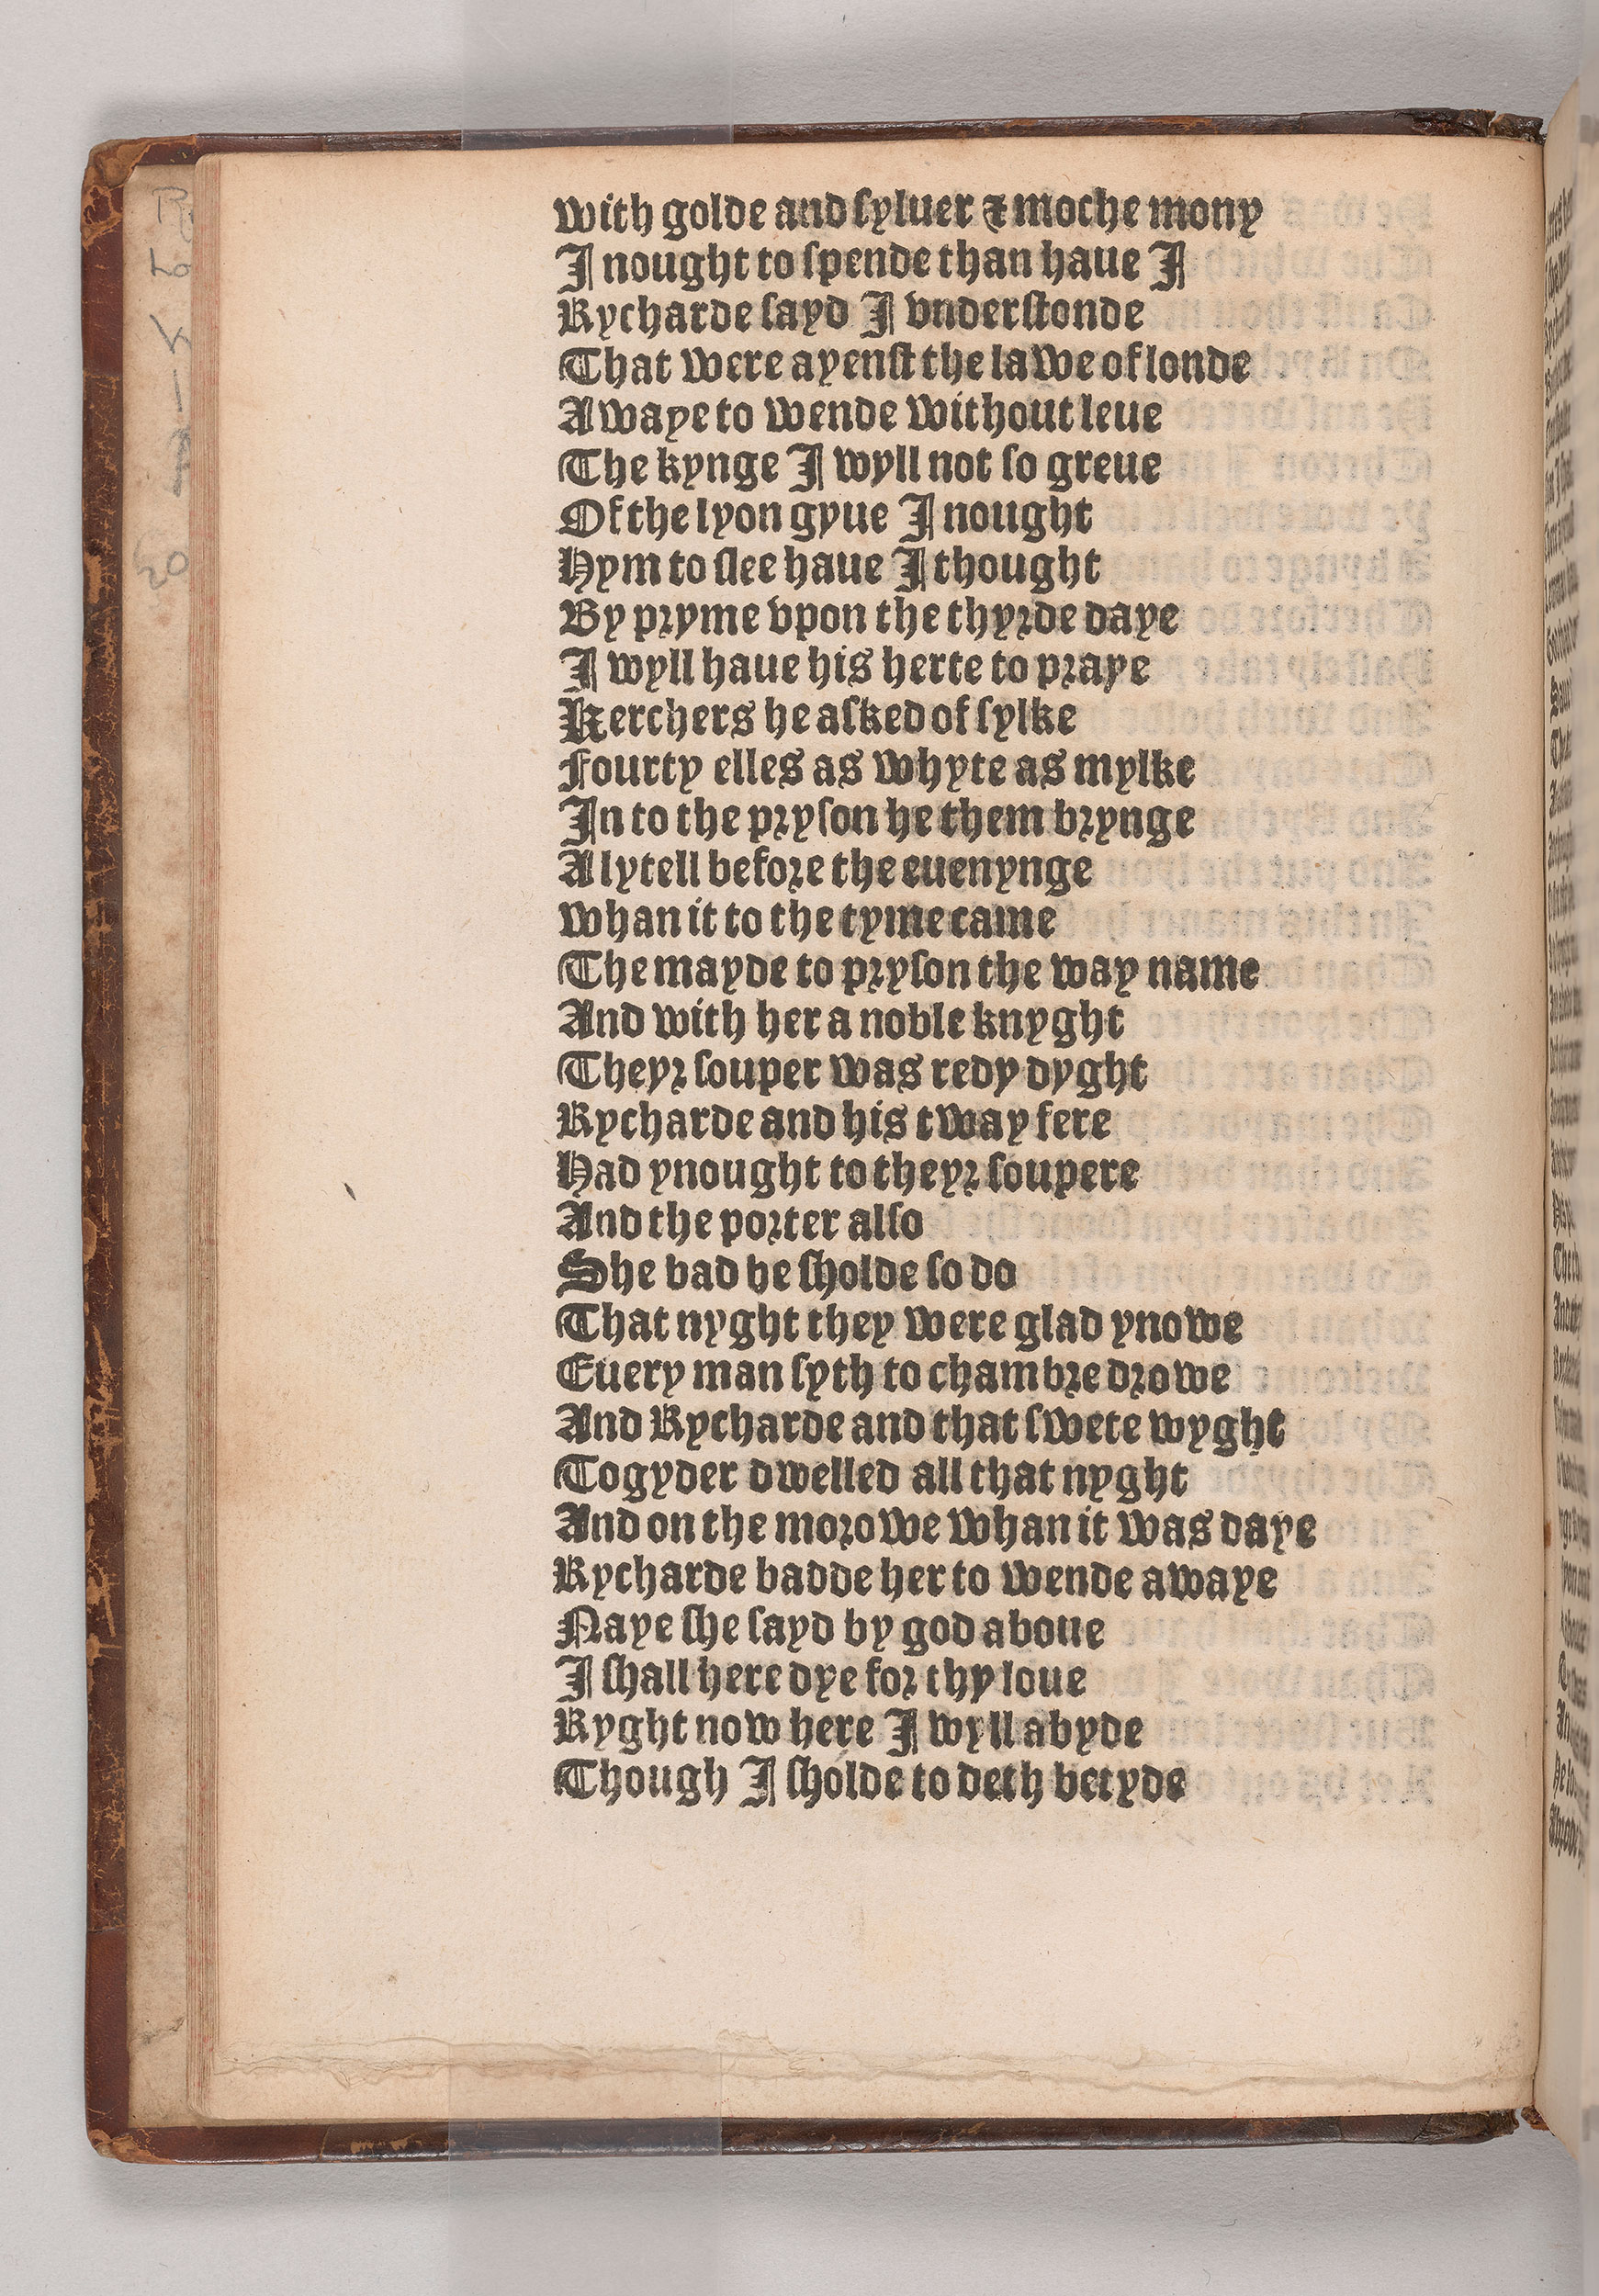 With golde and syluer & moche mony
I nought to spende than haue I
Rycharde sayd I vnderstonde
That were ayenst the lawe of londe
Awaye to wende without leue
The kynge I wyll not so greue
Of the lyon gyue I nought
Hym to slee haue I thought
By pryme vpon the thyrde daye
I wyll haue his herte to praye
Kerchers he asked of sylke
Fourty elles as whyte as mylke
In to the pryson he them brynge
A lytell before the euenynge
Whan it to the tyme came
The mayde to pryson the way name
And with her a noble knyght
Theyr souper was redy dyght
Rycharde and his tway fere
Had ynought to theyr soupere
And the porter also
She bad he sholde so do
That nyght they were glad ynowe
Euery man syth to chambre drowe
And Rycharde and that swete wyght
Togyder dwelled all that nyght
And on the morowe whan it was daye
Rycharde badde her to wende awaye
Naye she sayd by god aboue
I shall here dye for thy loue
Ryght now here I wyll abyde
Though I sholde to deth betyde